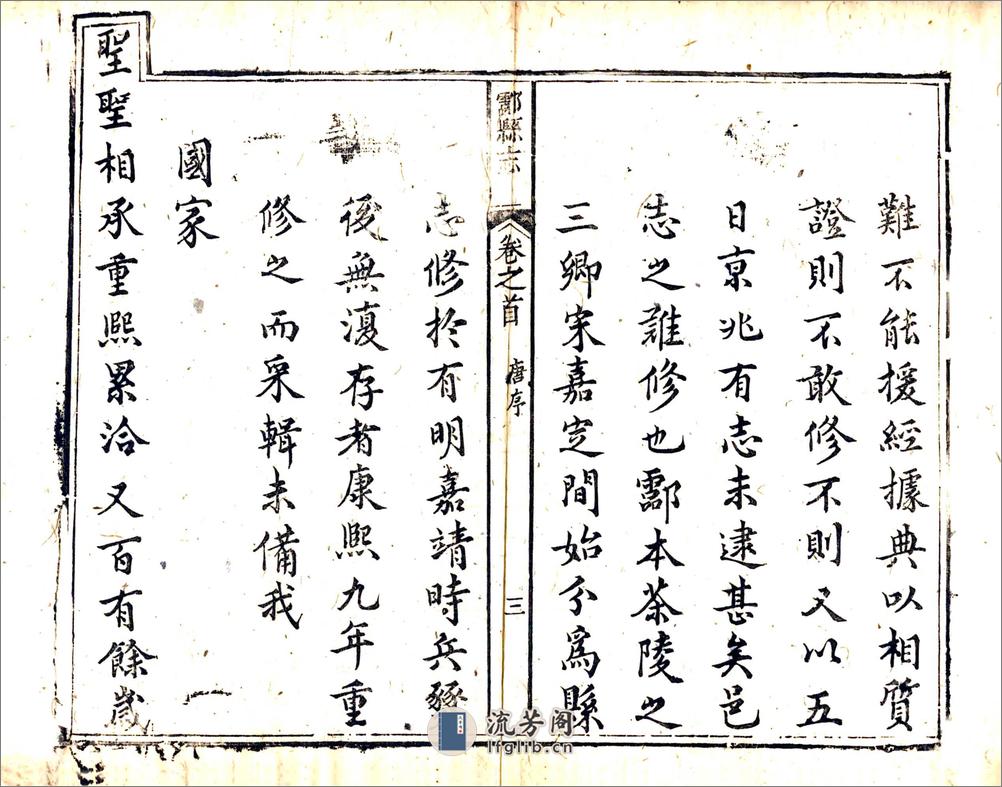 難不能援經據典以相質
證則不敢修不則又以五
日京兆有志未逮甚矣邑
志之難修也酃本茶陵之
三鄉宋嘉定間始分爲縣
酃縣志
卷之首
唐序
三
志修於有明嘉靖時兵
後無復存者康熙九年重
修之而采輯未備我
國家
聖聖相承重熙累洽又百有餘歲
流芳阁
lfglib.cn